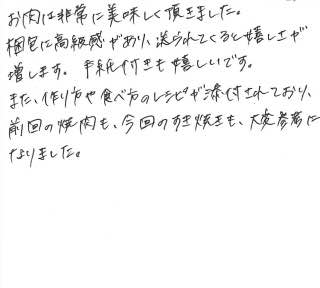 お肉は非常に美味しく頂きました。
梱包に高級感があり、送られてくると嬉しさが
増します。手紙付きも嬉しいです。
また、作り方や食べ方のレシピが添付されており、
前回の焼肉も、今回のすき焼きも、大変参考に
なりました。